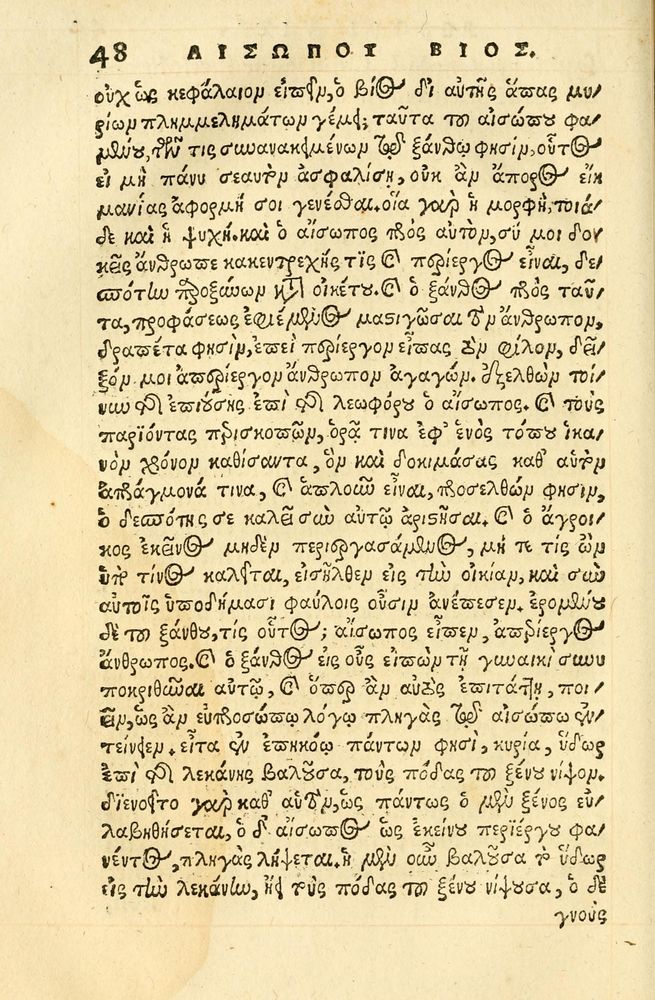 48 ΑΙΣΩΠΟΥ ΒΙΟΣ.
οὐχ ὡς κεφάλαιον εἰπεῖν, ὁ βίος δι αὐτῆς ἅπας μυ/
ρίων πλημμελημάτων γέμει; ταῦτα τοῦ αἰσώπου φα/
μένου, τῶν τις συνανακειμένων τῷ ξάνθῳ φησὶν, οὗτος
εἰ μὴ πάνυ σεαυτὸν ἀσφαλίσῃ, οὐκ ἂν ἄπορος εἰκ
μανίας ἀφορμή σοι γενέσθαι. οἵα γὰρ ἡ μορφὴ, τοιά/
δε καὶ ἡ ψυχή. καὶ ὁ αἴσωπος πρὸς αὐτὸν, σύ μοι δο/
κεῖς ἄνθρωπε κακεντρεχής τὶς καὶ περίεργος εἶναι, δε/
σπότην παροξύνων κατ οἰκέτου. καὶ ὁ ξάνθος πρὸς ταῦ/
τα, προφάσεως ἐφιέμενος μαστιγῶσαι τὸν ἄνθρωπον,
δραπέτα φησὶν, ἐπεὶ περίεργον εἶπας τὸν φίλον, δεῖ/
ξόν μοι ἀπερίεργον ἄνθρωπον ἀγαγών. ἐξελθὼν τοί/
νυν τῆς ἐπιούσης ἐπὶ τῆς λεωφόρου ὁ αἴσωπος. καὶ τοὺς
παριόντας περισκοπῶν, ὁρᾷ τινα ἐφ' ἑνὸς τόπου ἱκα/
νὸν χρόνον καθίσαντα, ὃν καὶ δοκιμάσας καθ' αὑτὸν
ἀπράγμονά τινα, καὶ ἁπλοῦν εἶναι, προσελθὼν φησὶν,
ὁ δεσπότης σε καλεῖ σὺν αὐτῷ ἀριστῆσαι. καὶ ὁ ἄγροι/
κος ἐκεῖνος μηδὲν περιεργασάμενος, μή τε τίς ὢν
ὑπό τίνος καλεῖται, εἰσῆλθεν εἰς τὴν οἰκίαν, καὶ σὺν
αὐτοῖς ὑποδήμασι φαύλοις οὖσιν ἀνέπεσεν. ἐρομένου
δὲ τοῦ ξάνθου, τίς οὗτος; αἴσωπος εἶπεν, ἀπερίεργος
ἄνθρωπος. καὶ ὁ ξάνθος εἰς οὖς εἰπὼν τῇ γυναικὶ συνυ
ποκριθῆναι αὐτῷ, καὶ ὅπερ ἂν αὐτὸς ἐπιτάττῃ, ποι/
εῖν, ὡς ἂν εὐπροσώπῳ λόγῳ πληγὰς τῷ αἰσώπῳ ἐν/
τείνειεν. εἶτα ἐν ἐπηκόῳ πάντων φησὶ, κυρία, ὕδωρ
ἐπὶ τῆς λεκάνης βαλοῦσα, τοὺς πόδας τοῦ ξένου νίψον.
διενοεῖτο γὰρ καθ' αὑτὸν, ὡς πάντως ὁ μὲν ξένος εὐ/
λαβηθήσεται, ὁ δ αἴσωπος ὡς ἐκείνου περιέργου φα/
νέντος, πληγὰς λήψεται. ἡ μὲν οὖν βαλοῦσα τὸ ὕδωρ
εἰς τὴν λεκάνην, ᾔει τοὺς πόδας τοῦ ξένου νίψουσα, ὁ δὲ
γνοὺς